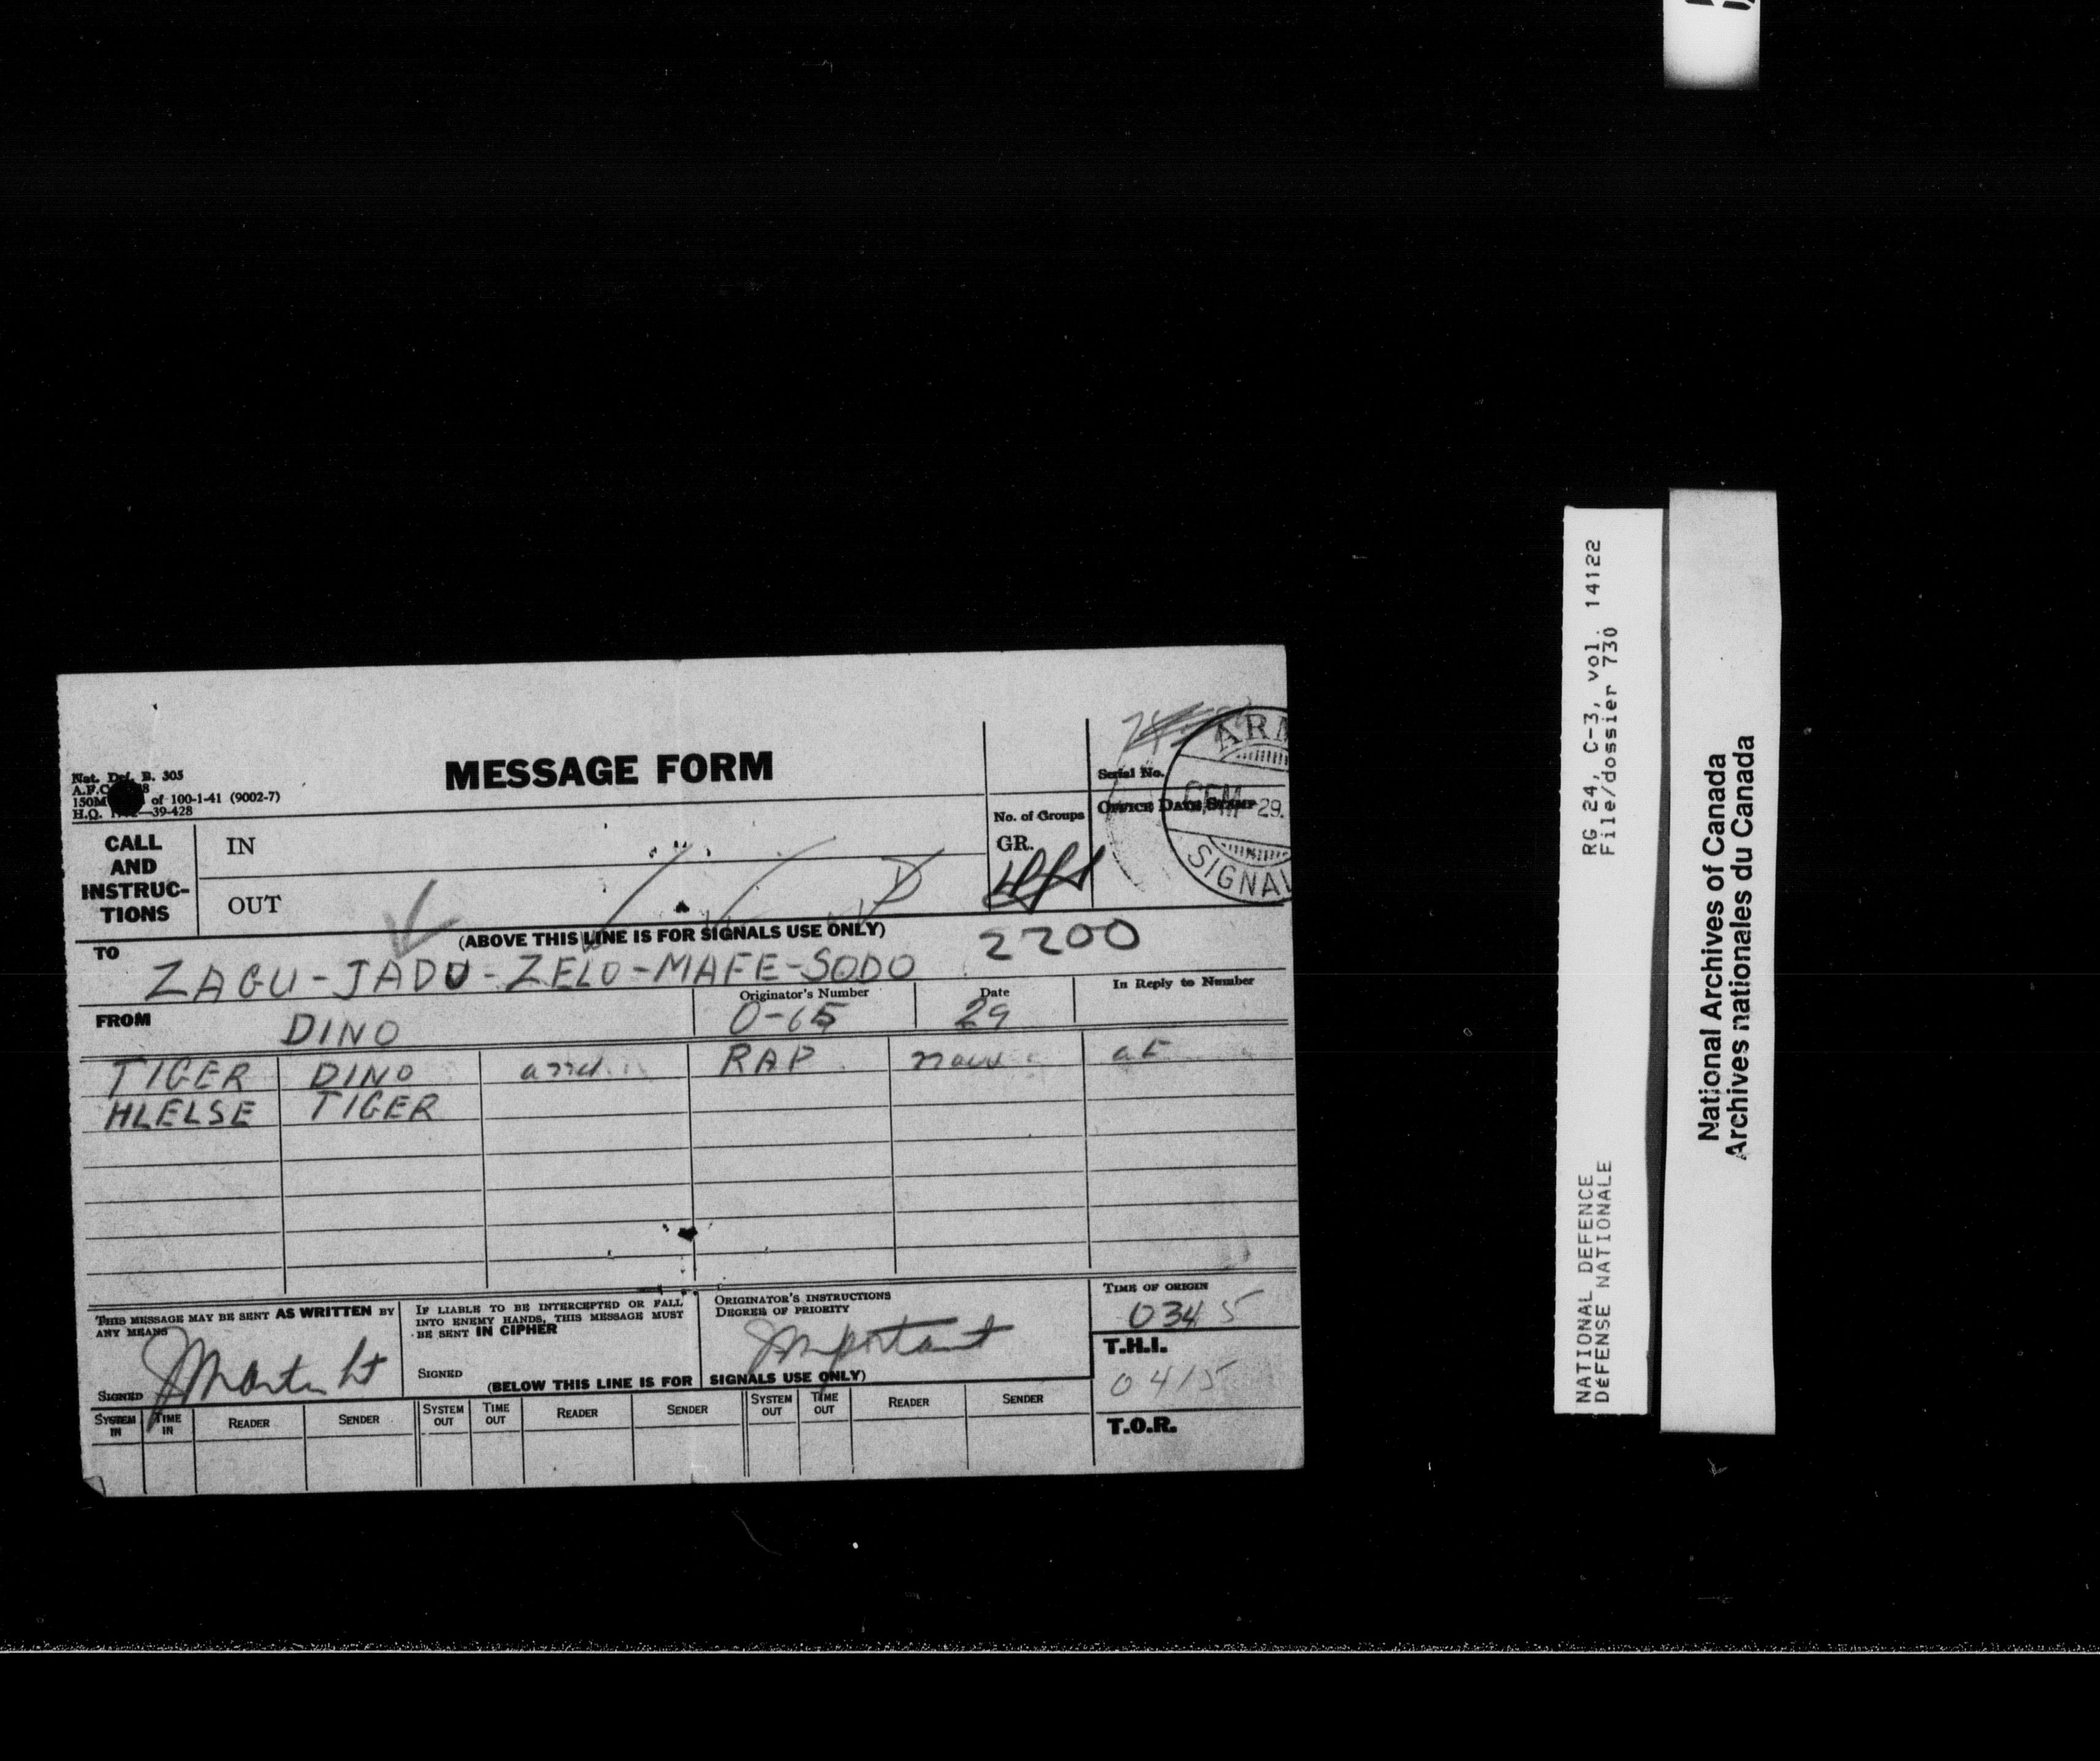 MESSAGE FORM
Nat. Def. B. 305
150M of 100-1-41 (9002-7)
H.Q. —39-428
Serial No.
No. of Groups
GR.
OFFICE DATE STAMP
29.
CALL AND INSTRUC-TIONS
IN
OUT
(ABOVE THIS LINE IS FOR SIGNALS USE ONLY)
2200
TO
ZAGU-JADU-ZELO-MAFE-SODO
FROM
DINO
Originator's Number
O-65
Date
29
In Reply to Number
TIGER DINO and RAP now at
HLELSE TIGER
THIS MESSAGE MAY BE SENT AS WRITTEN BY
ANY MEANS
SIGNED
IF LIABLE TO BE INTERCEPTED OR FALL
INTO ENEMY HANDS, THIS MESSAGE MUST
BE SENT IN CIPHER
SIGNED
ORIGINATOR'S INSTRUCTIONS
DEGREE OF PRIORITY
Important
TIME OF ORIGIN
0345
T.H.I.
0415
T.O.R.
(BELOW THIS LINE IS FOR SIGNALS USE ONLY)
SYSTEM IN TIME IN READER SENDER SYSTEM OUT TIME OUT READER SENDER SYSTEM OUT TIME OUT READER SENDER
NATIONAL DEFENCE RG 24, C-3, vol. 14122
DÉFENSE NATIONALE File/dossier 730
National Archives of Canada
Archives nationales du Canada